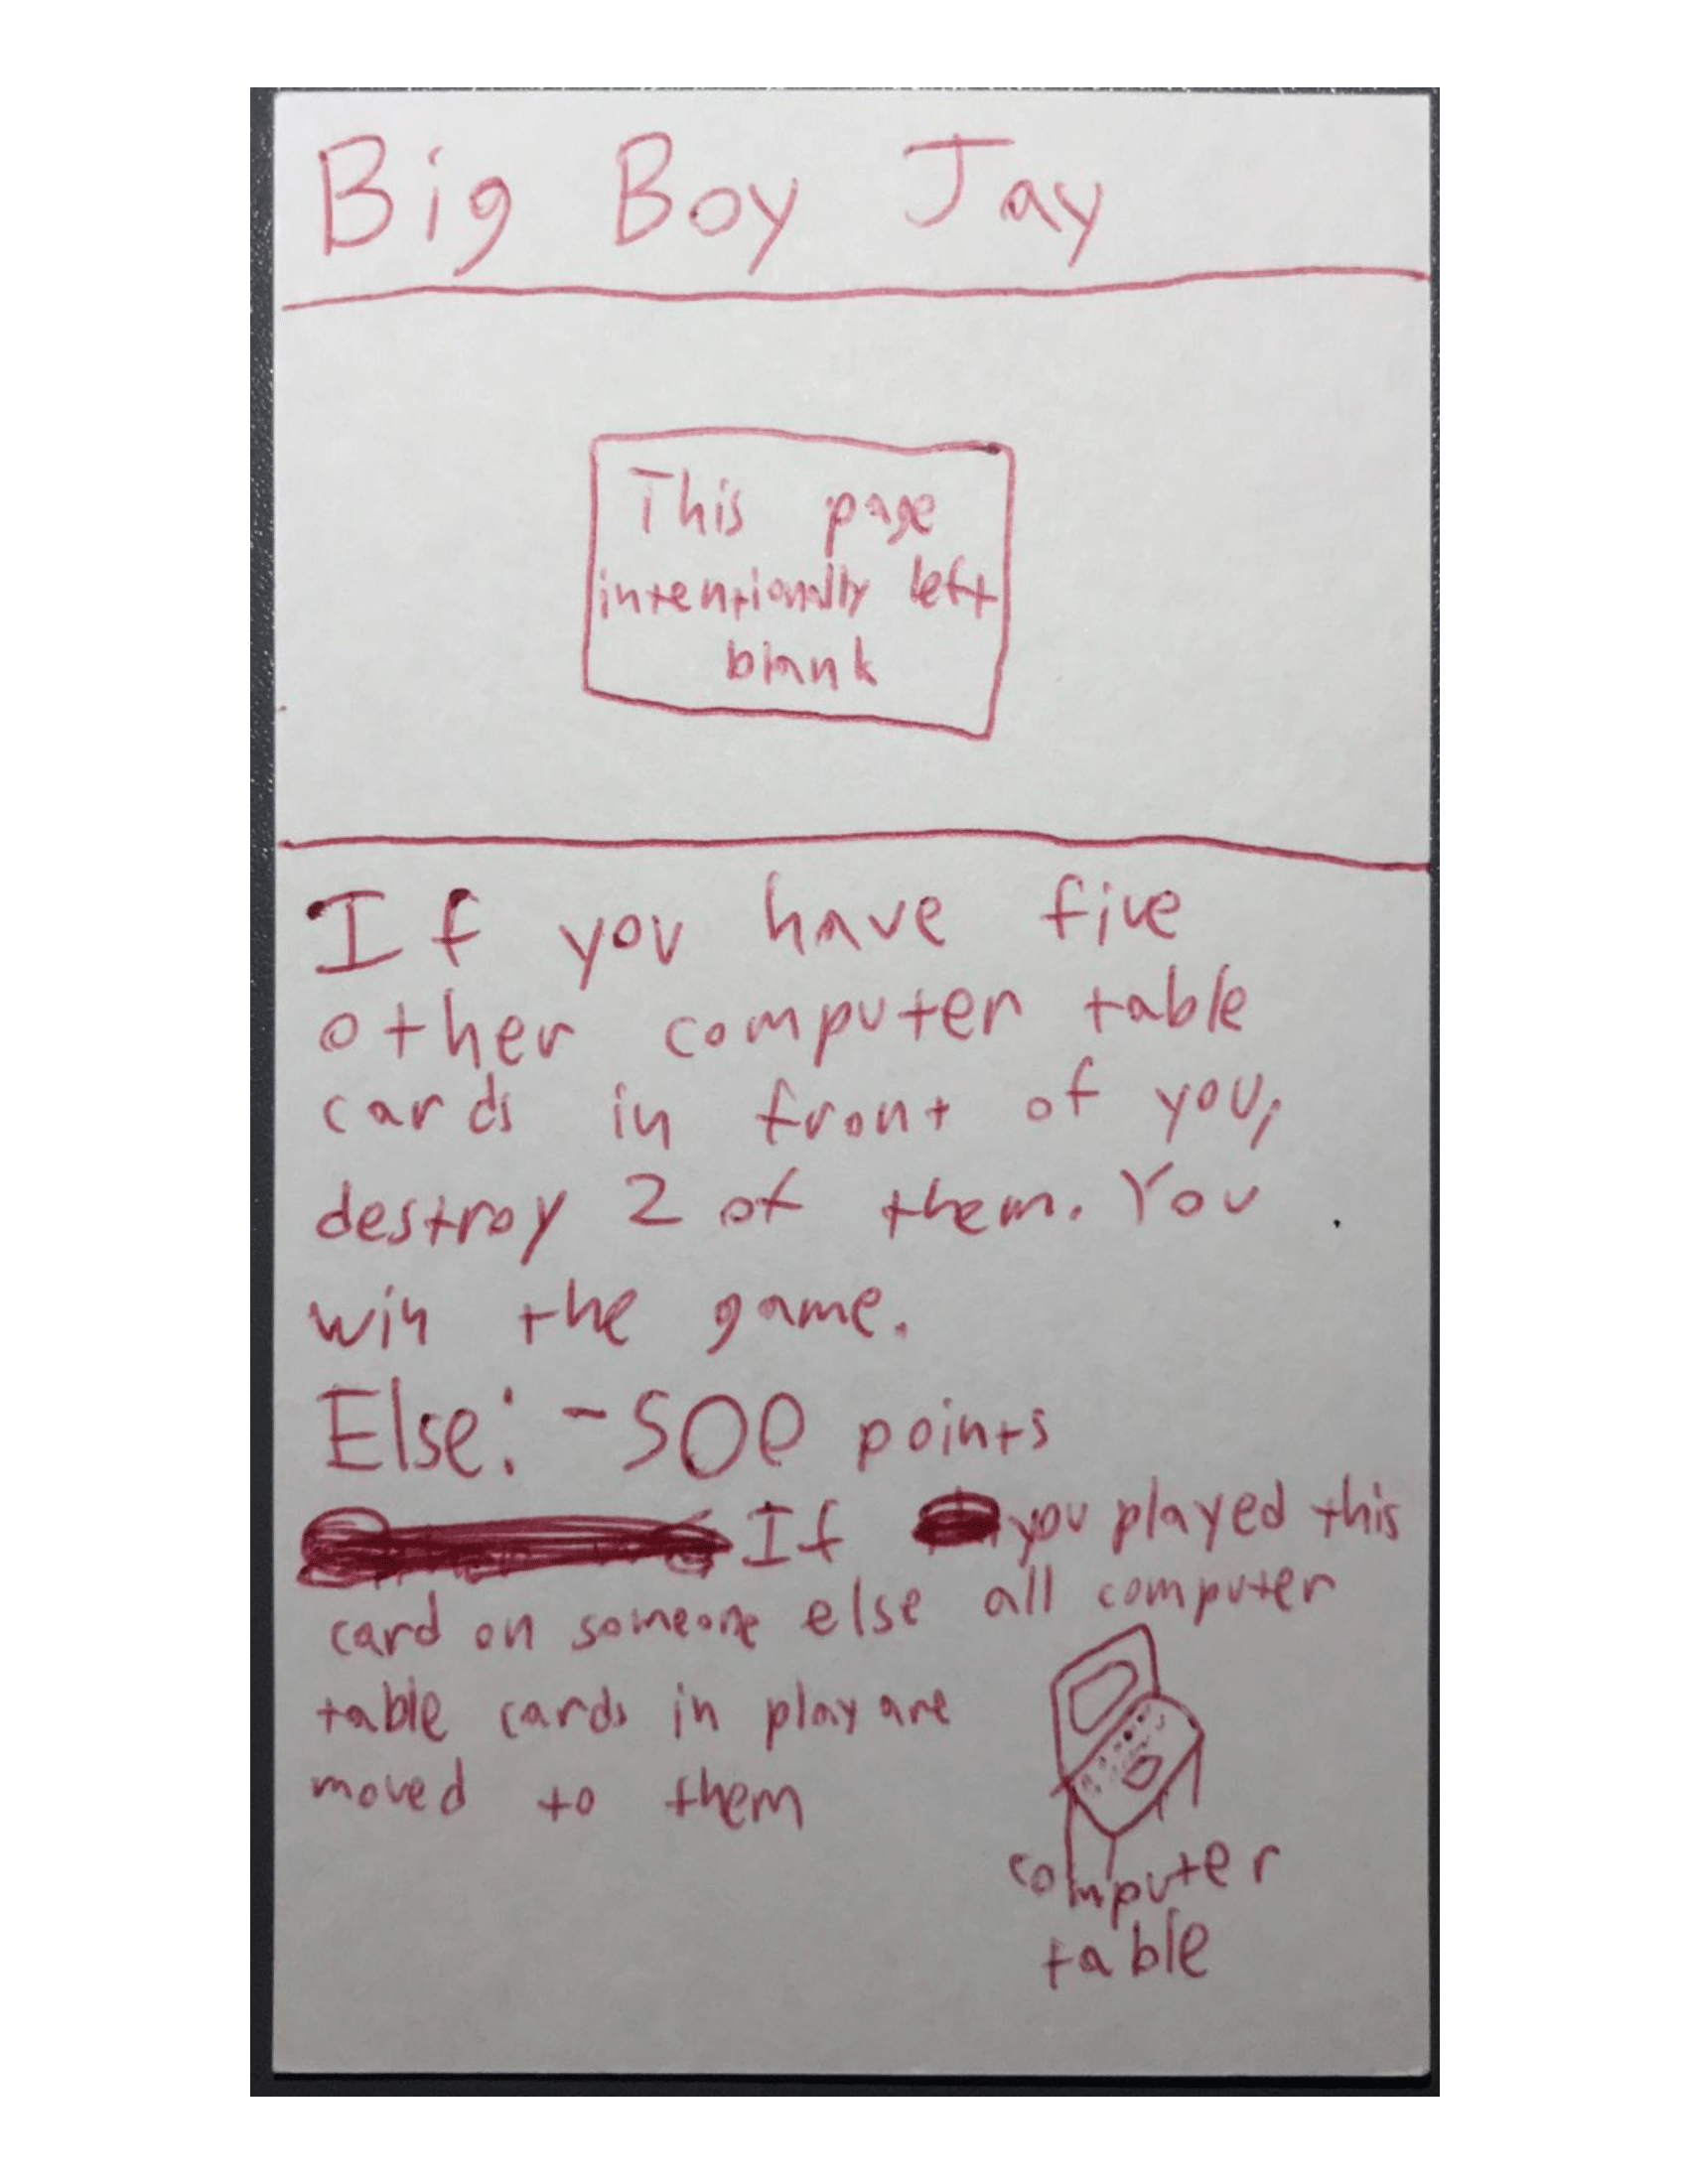 Big Boy Jay
This page
intentionally left
blank
If you have five
other computer table
cards in front of you,
destroy 2 of them. You
win the game.
Else: -500 points
If you played this
card on someone else all computer
table cards in play are
moved to them
computer
table